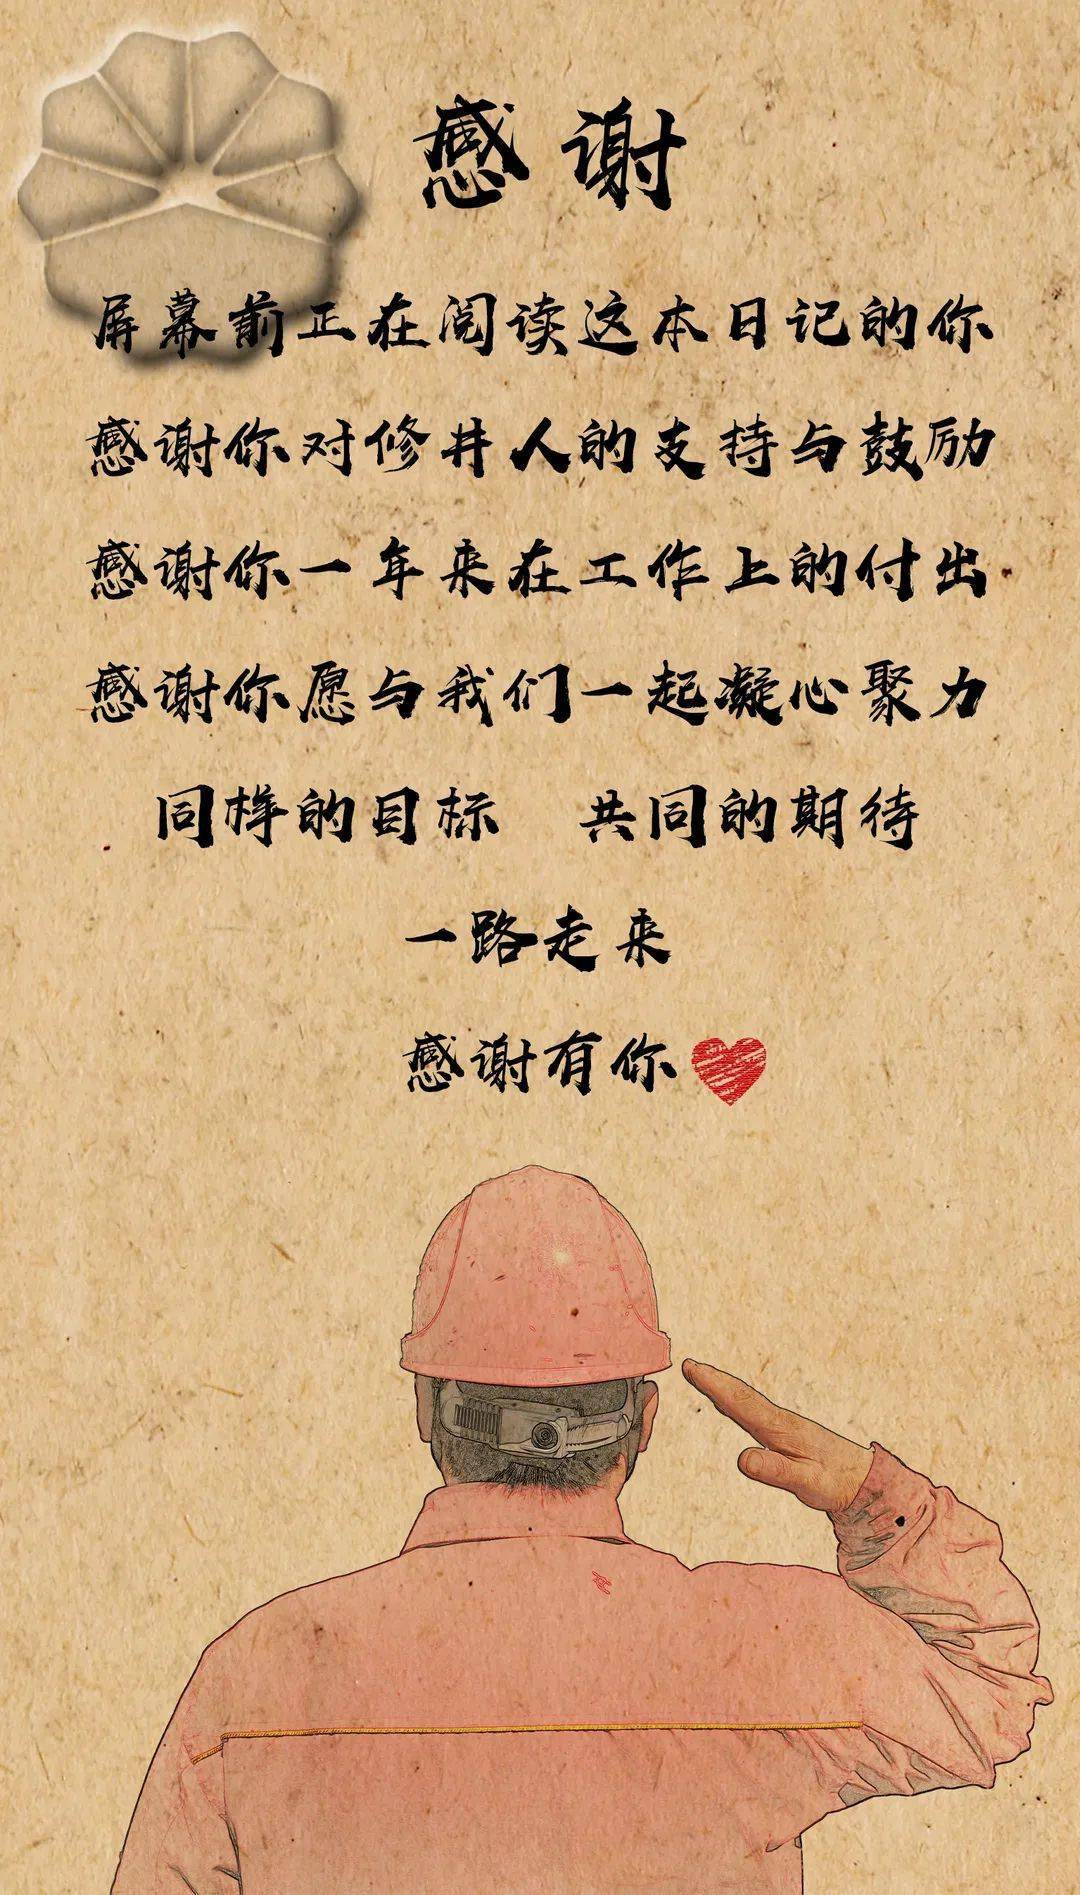 感谢
屏幕前正在阅读这本日记的你
感谢你对修井人的支持与鼓励
感谢你一年来在工作上的付出
感谢你愿与我们一起凝心聚力
同样的目标 共同的期待
一路走来
感谢有你